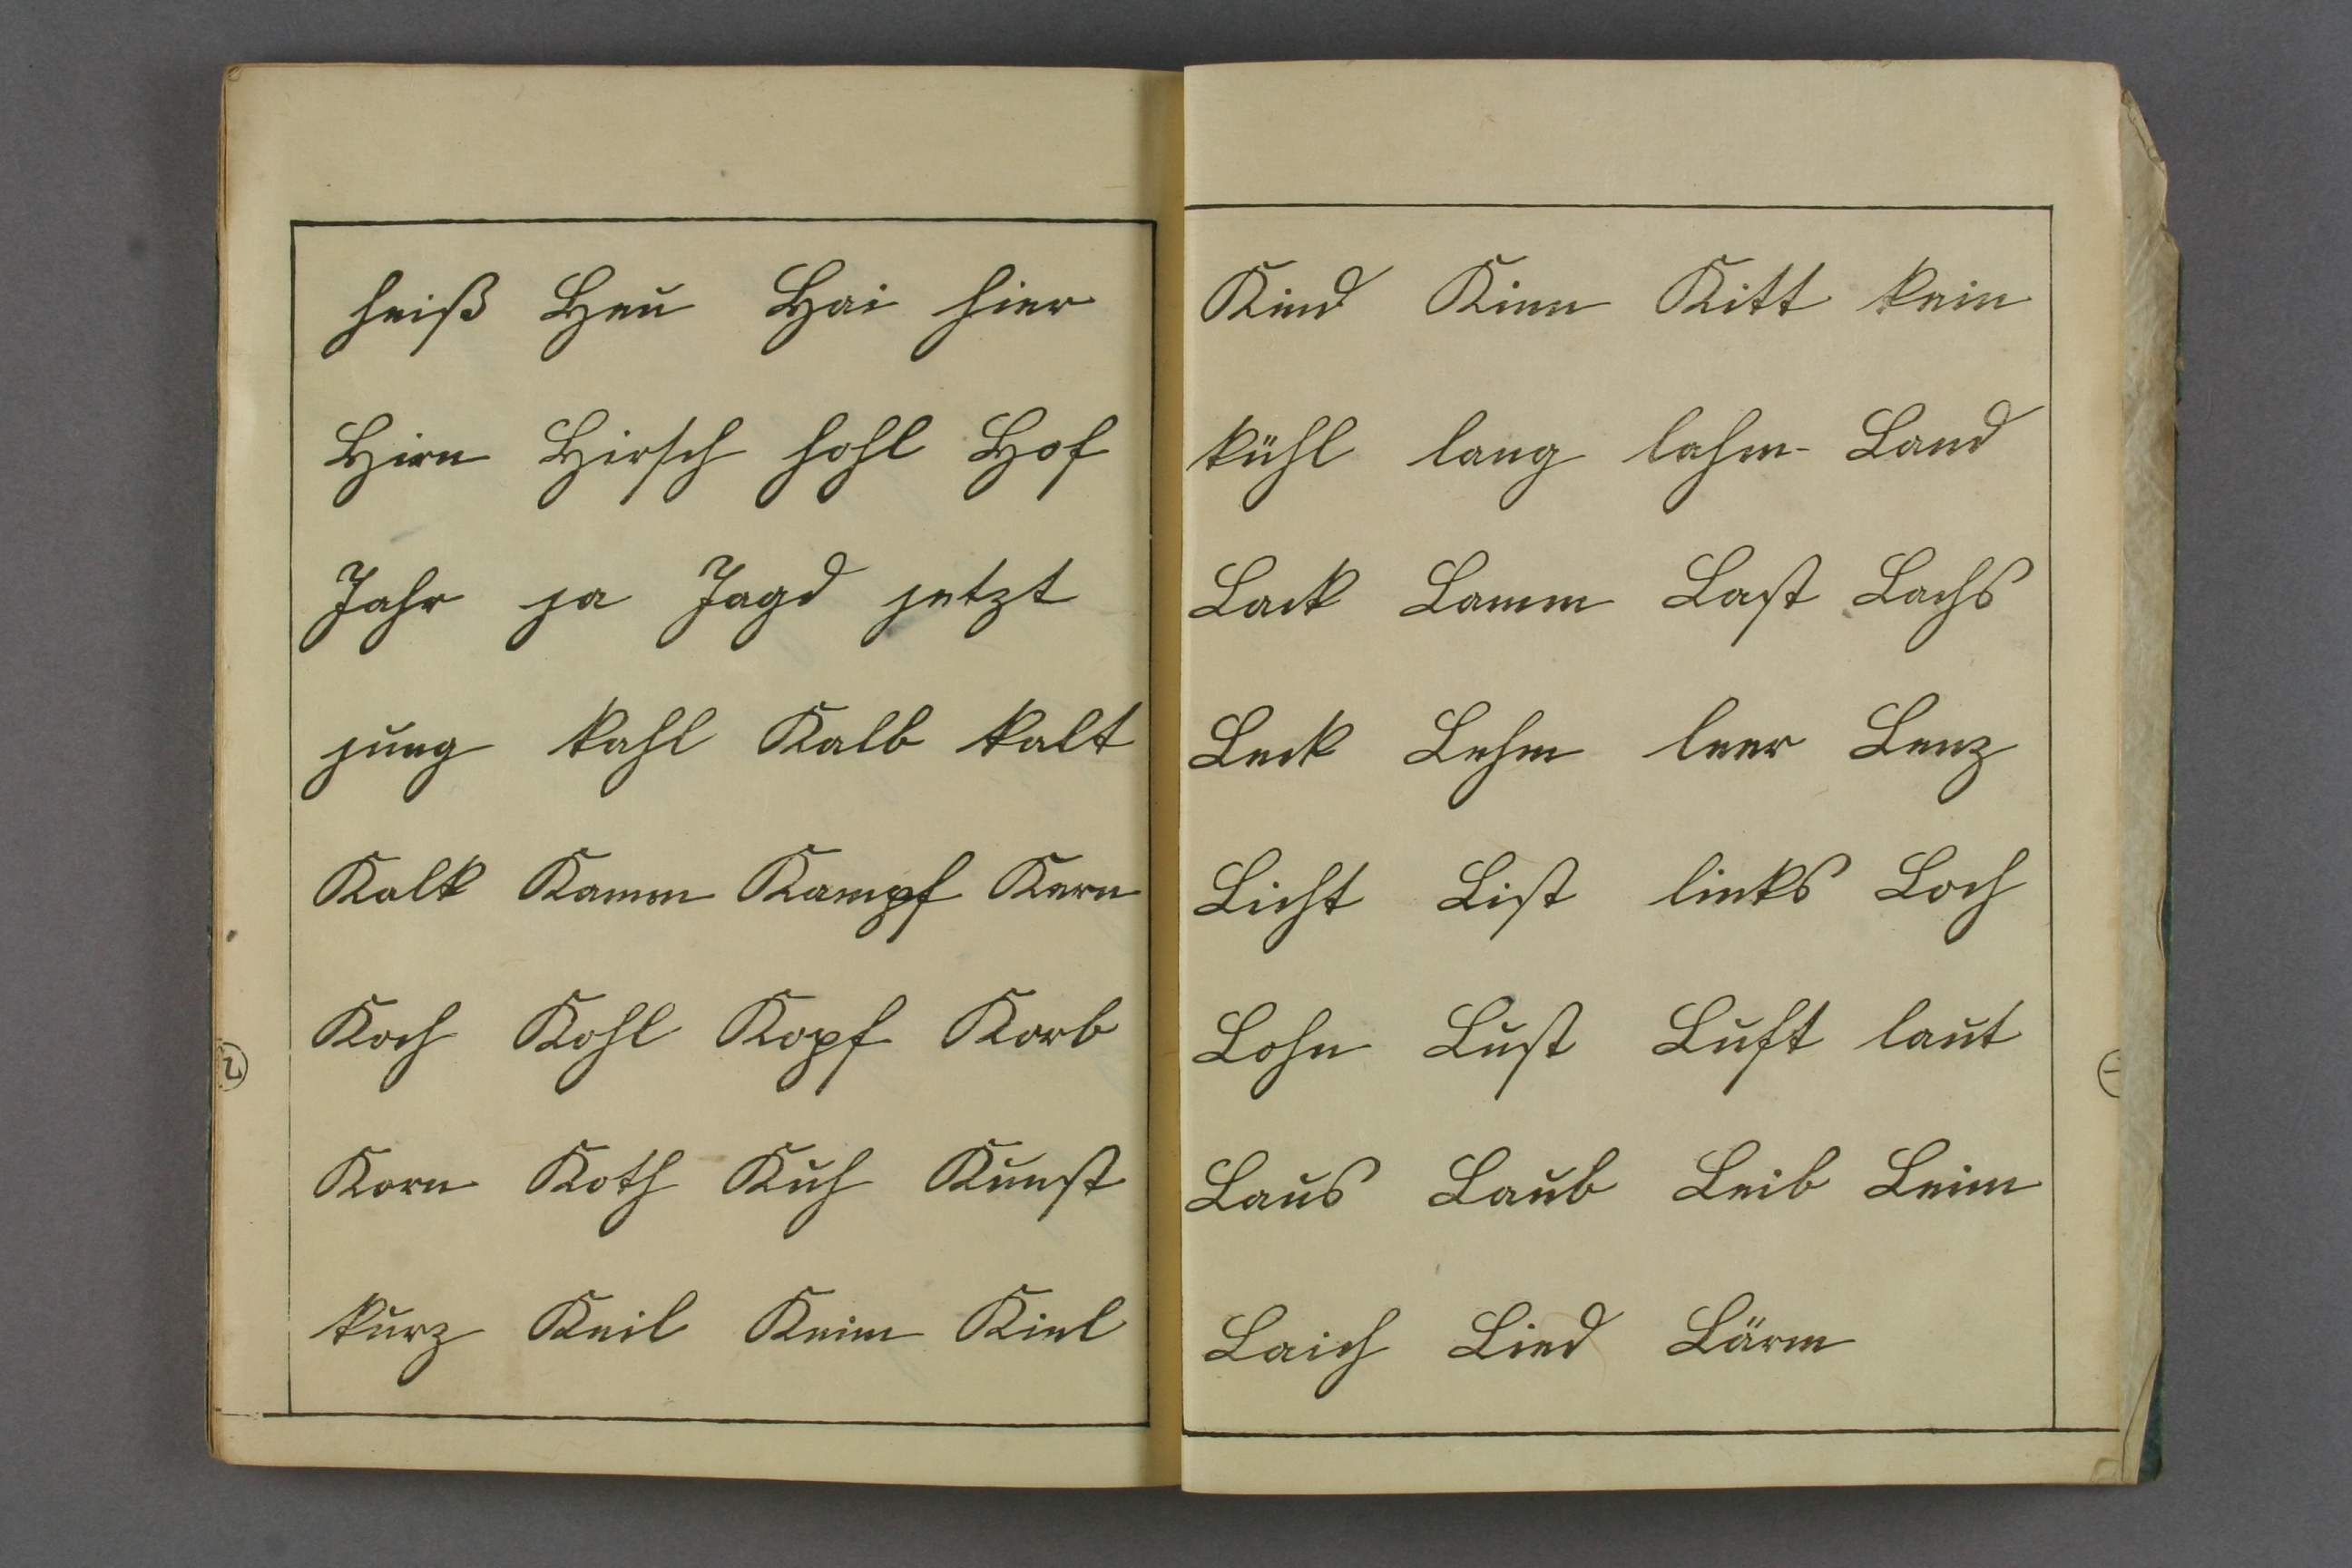 heiß Heu Hai hier
Hirn Hirsch hohl Hof
Jahr ja Jagd jetzt
jung kahl Kalb kalt
Kalk Kamm Kampf Kern
Koch Kohl Kopf Korb
Korn Koth Kuh Kunst
kurz Keil Keim Kiel
Kind Kinn Kitt kein
kühl lang lahm Land
Lack Lamm Last Lachs
Leck Lehm leer Lenz
Licht List links Loch
Lohn Lust Luft laut
Laus Laub Leib Leim
Laich Lied Lärm